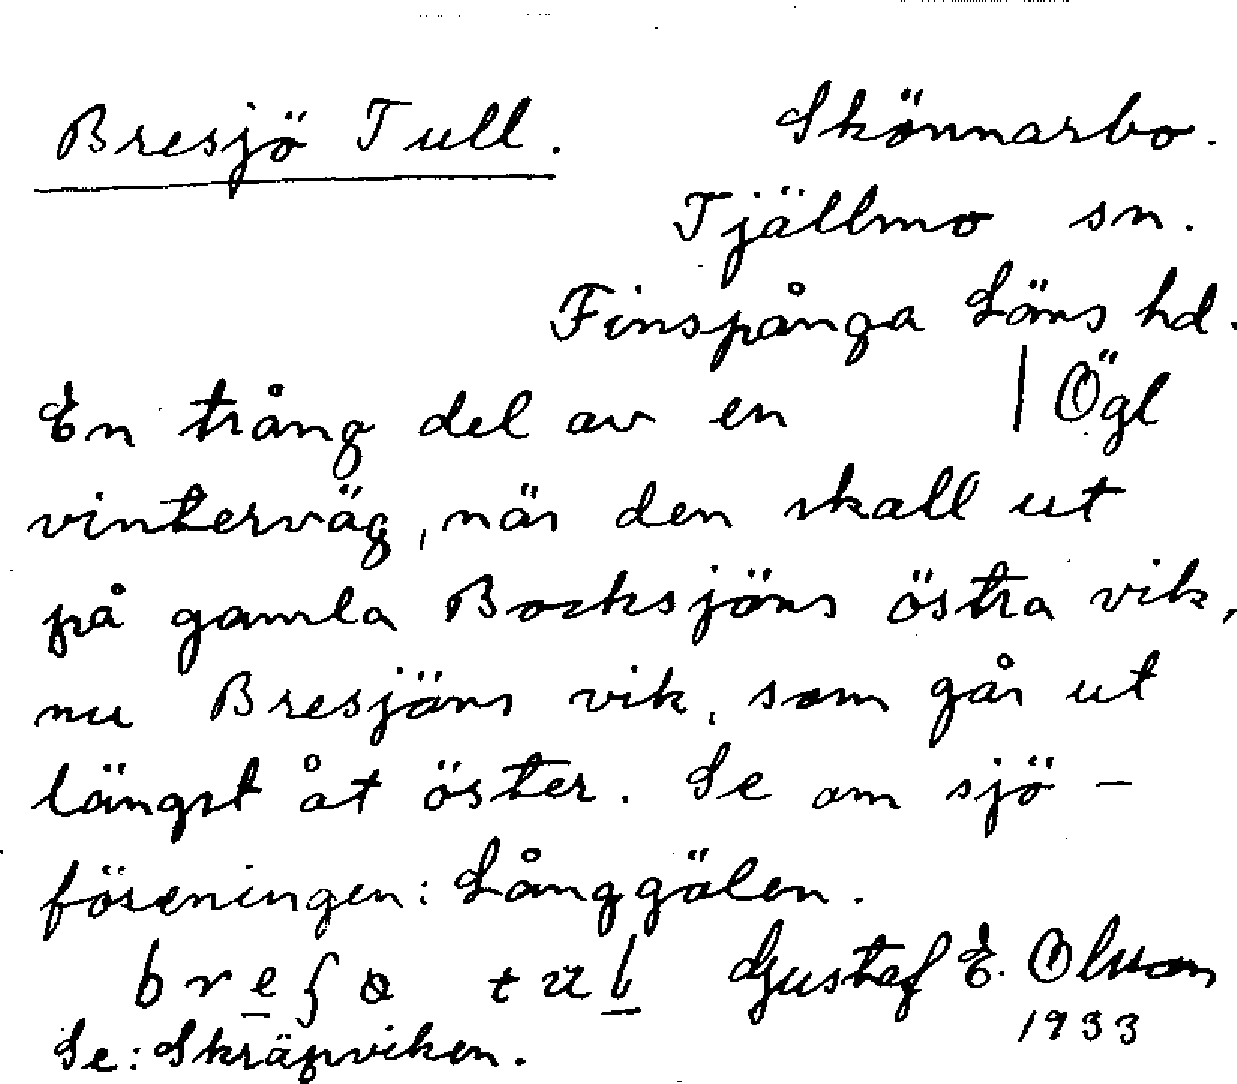 Bresjö Tull. Skönnarbo.
Tjällmo sn.
Finspånga Läns hd.
En trång del av en | Ögl
vinterväg, när den skall ut
på gamla Bocksjöns östra vik,
nu Bresjöns vik, som går ut
längst åt öster. Se om sjö-
föreningen: Långgölen.
Gustaf E. Olsson
1933
Se: Skräpviken.